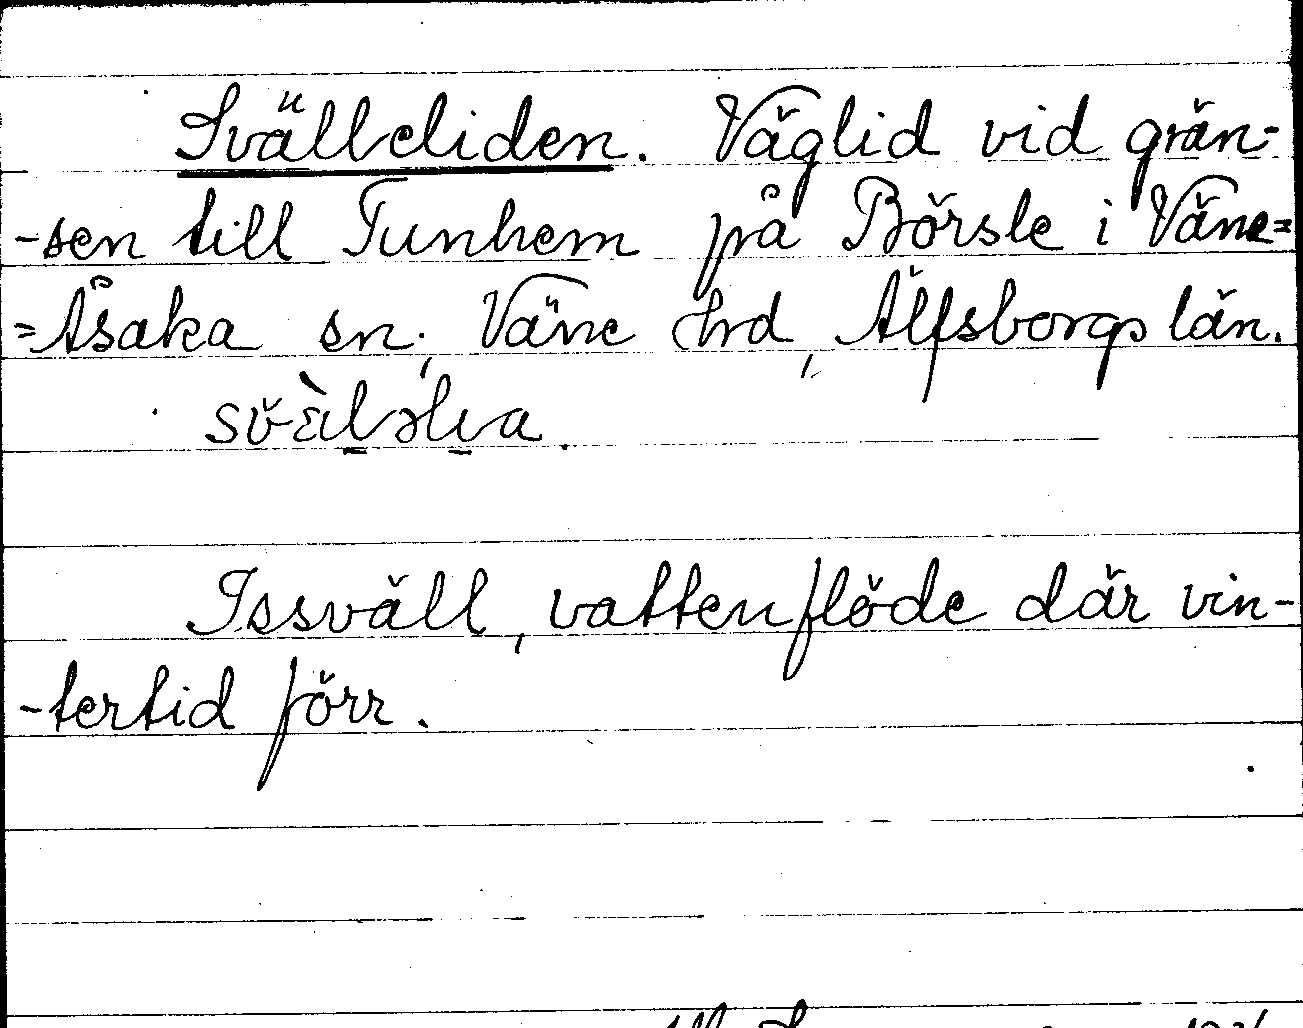 Svälleliden. Väglid vid grän-
-sen till Tunhem på Börsle i Väne=
=Åsaka sn; Väne hrd, Älfsborgs län.
Issväll, vattenflöde där vin-
-tertid förr.